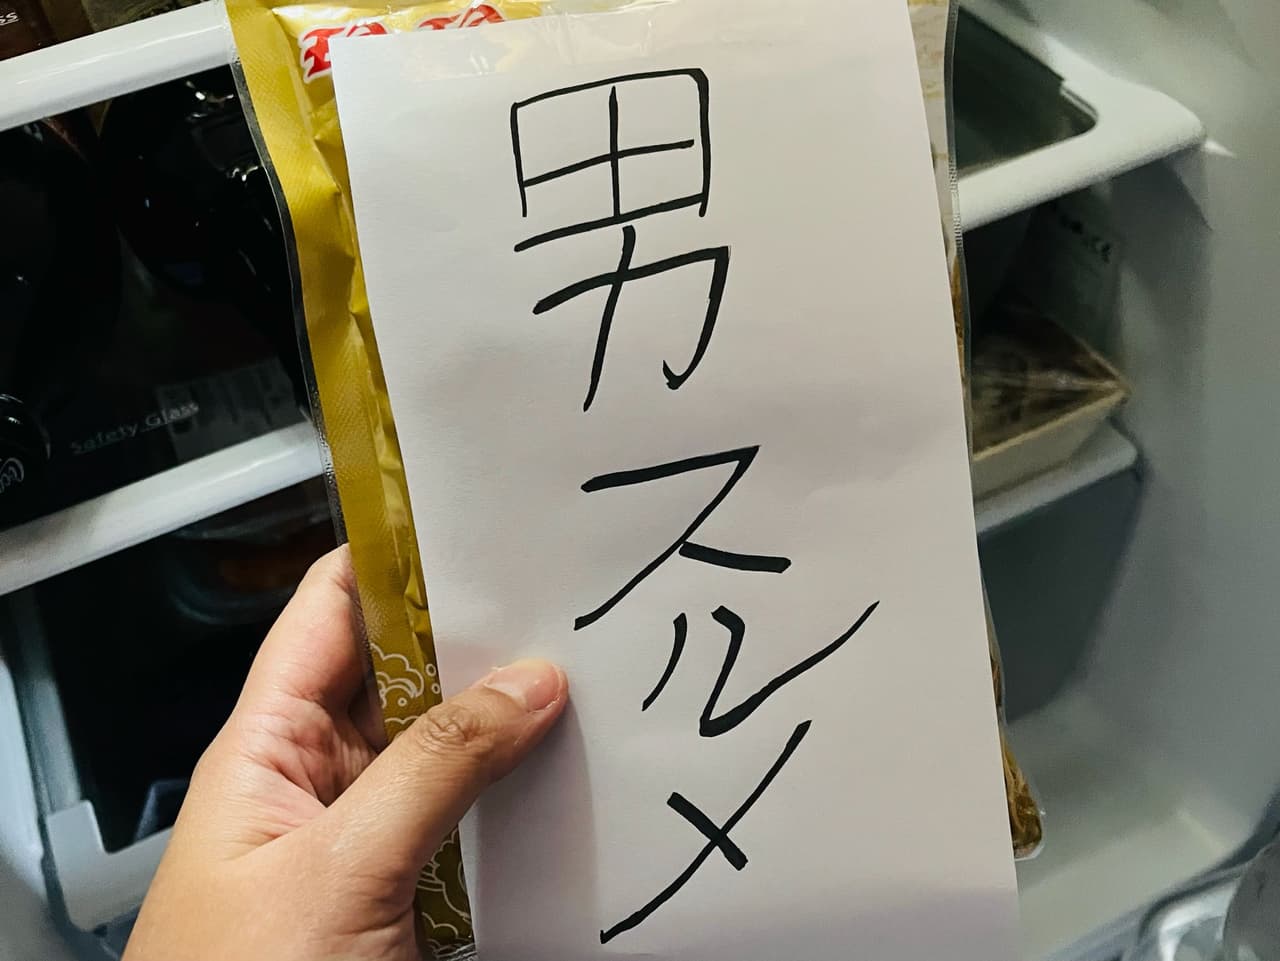 男スルメ
Safety Glass